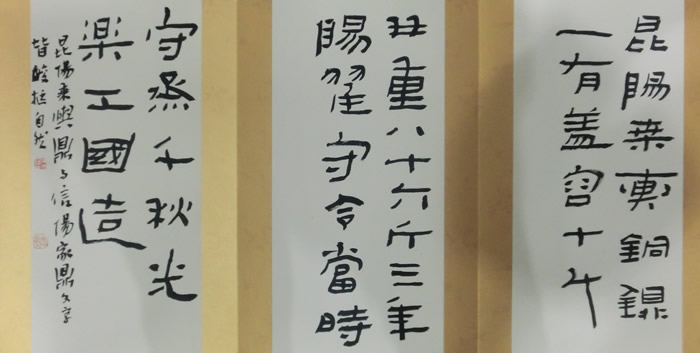 昆陽乗輿銅鼎
一有盖容十斗
并重八十六斤三年
陽翟守令當時
守丞千秋光
楽工國造
昆陽乗輿鼎与信陽家鼎文字
皆拙自然